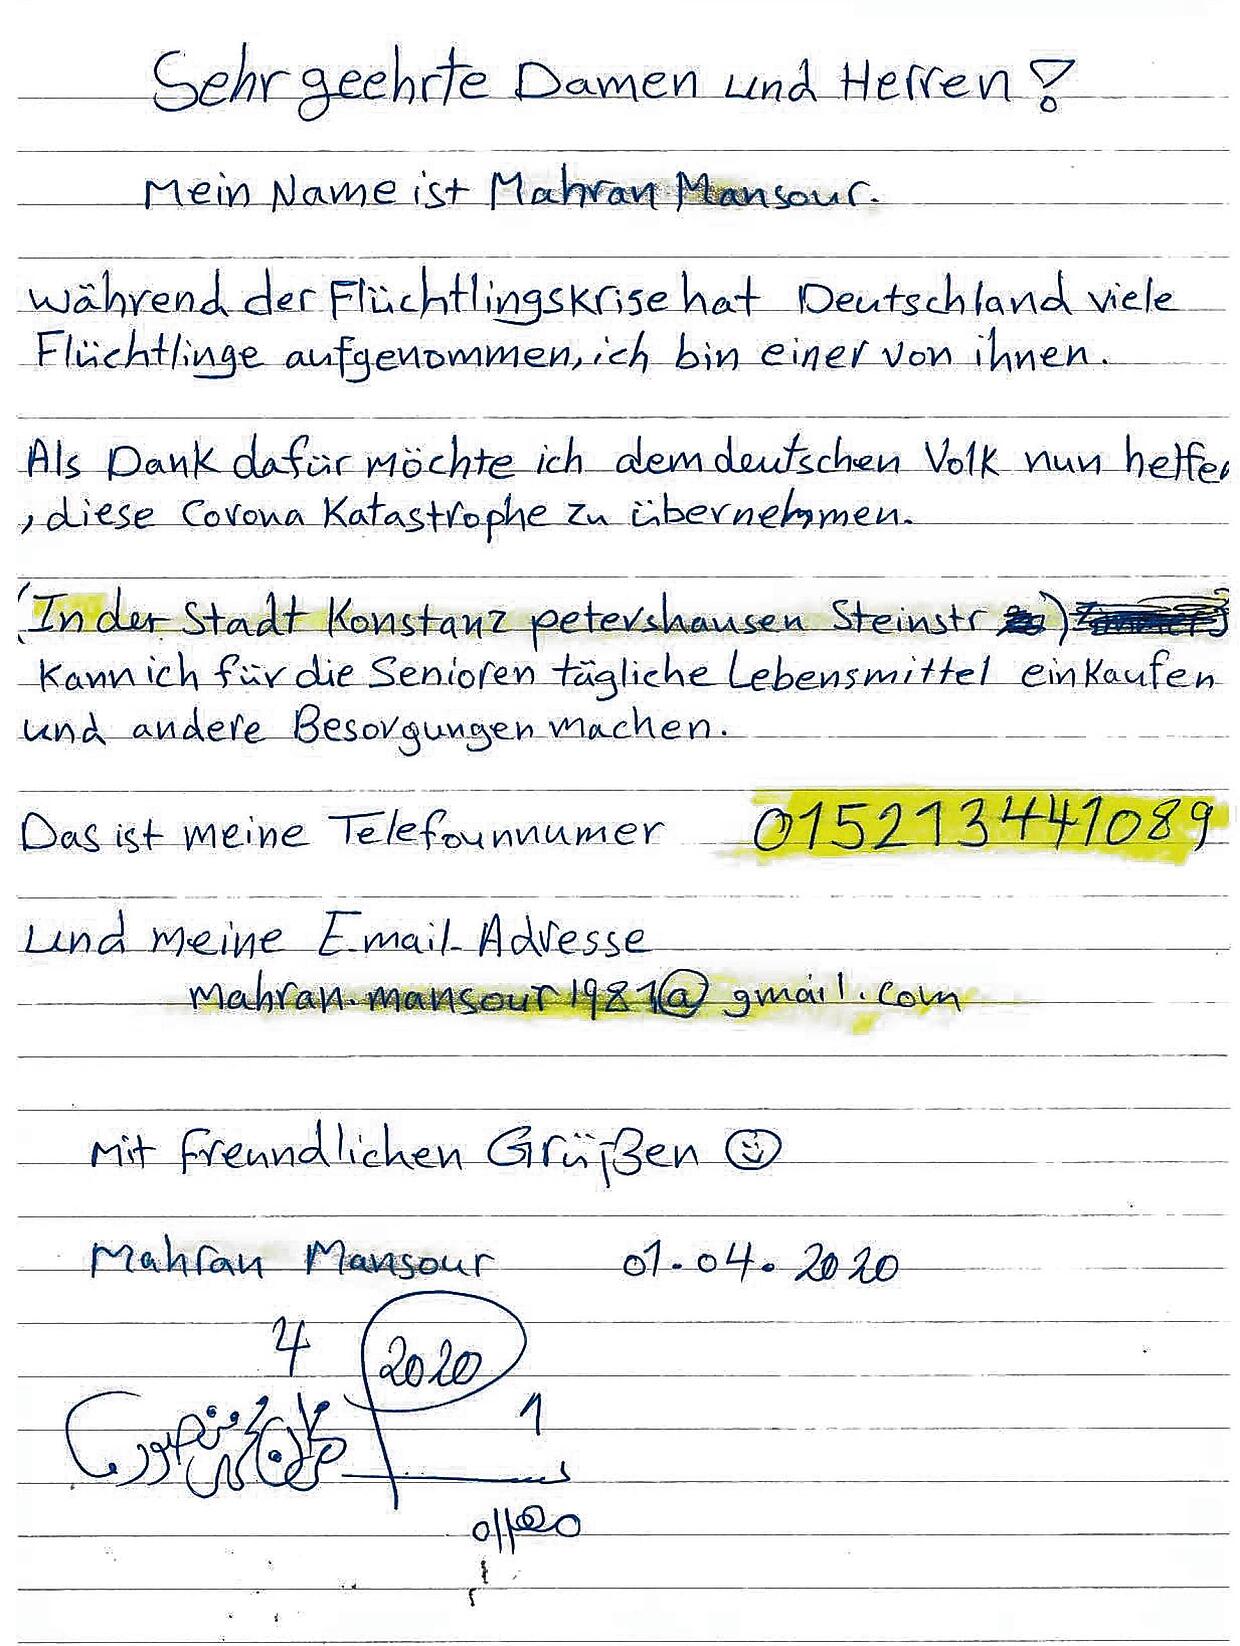 Sehr geehrte Damen und Herren !
Mein Name ist Mahran Mansour.
während der Flüchtlingskrise hat Deutschland viele
Flüchtlinge aufgenommen, ich bin einer von ihnen.
Als Dank dafür möchte ich dem deutschen Volk nun helfen
, diese Corona Katastrophe zu übernehmen.
(In der Stadt Konstanz petershausen Steinstr )
kann ich für die Senioren tägliche Lebensmittel einkaufen
und andere Besorgungen machen.
Das ist meine Telefounnumer 015213441089
und meine Email-Adresse
mahran.mansour1981@gmail.com
Mit freundlichen Grüßen ☺
Mahran Mansour 01.04.2020
4 2020
1